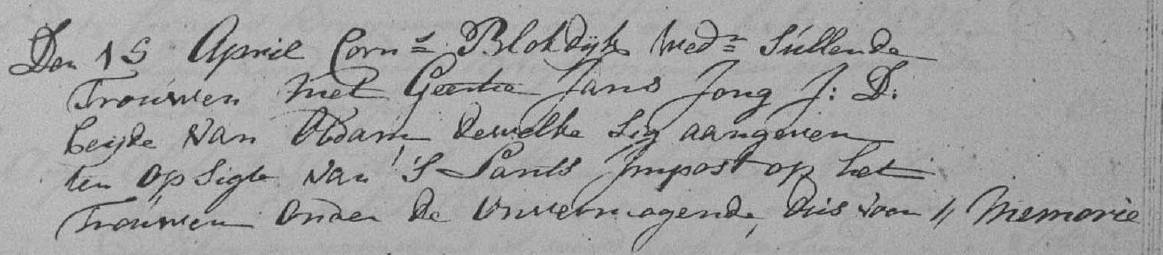 Den 15 April Corn:s Blokdijk Wed:r Sullende
Trouwen Met Geertie Jans Jong J: D:
beijde van Obdam, dewelke sig aangeven
ten opsigte van 'S Lants Impost op het
Trouwen onder de onvermogende, dus voor // Memorie